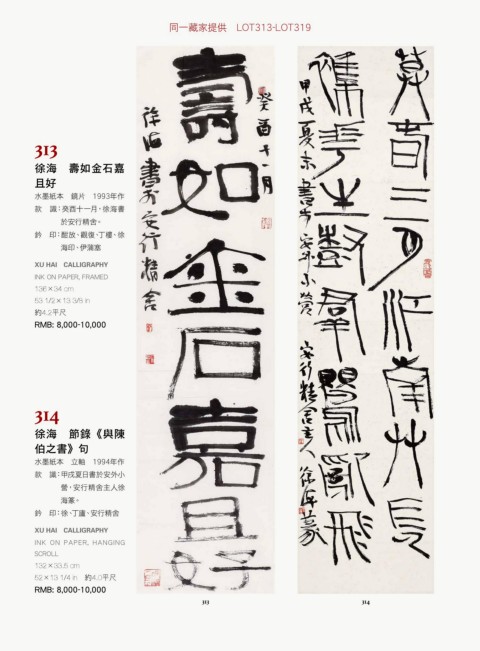 同一藏家提供 LOT313-LOT319
313
徐海 壽如金石嘉
且好
水墨紙本 鏡片 1993年作
款 識：癸酉十一月，徐海書
於安行精舍。
鈐 印：酣放、觀復、丁樓、徐
海印、伊蒲塞
XU HAI CALLIGRAPHY
INK ON PAPER, FRAMED
136×34 cm
53 1/2×13 3/8 in
約4.2平尺
RMB: 8,000-10,000
314
徐海 節錄《與陳
伯之書》句
水墨紙本 立軸 1994年作
款 識：甲戌夏日書於安外小
營，安行精舍主人徐
海篆。
鈐 印：徐、丁廬、安行精舍
XU HAI CALLIGRAPHY
INK ON PAPER, HANGING
SCROLL
132×33.5 cm
52×13 1/4 in 約4.0平尺
RMB: 8,000-10,000
癸酉十一月
壽如金石嘉且好
徐海書於安行精舍
313
暮春三月江南草長
雜花生樹群鶯亂飛
甲戌夏末書於安外小營
安行精舍主人徐海篆
314